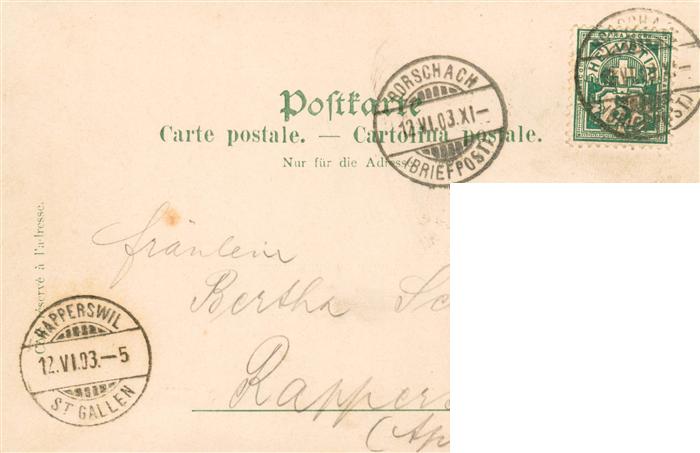 Postkarte
Carte postale. — Cartolina postale.
Nur für die Adresse
RORSCHACH
12.VI.03.XI–
(BRIEFPOST)
HELVETIA
Côté réservé à l'adresse.
Fräulein
Bertha Sc
Rappers
(Ap
RAPPERSWIL
12.VI.03.–5
ST GALLEN